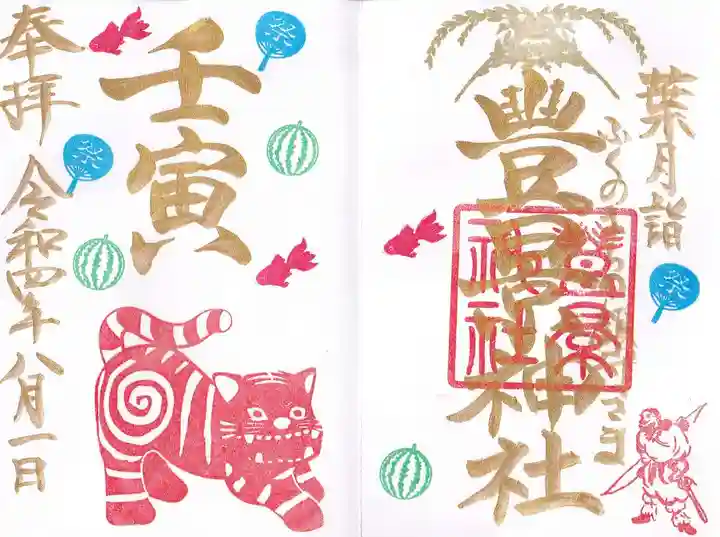 葉月詣
豐景神社
豊景神社
祭
壬寅
祭
祭
奉拝
令和四年八月一日